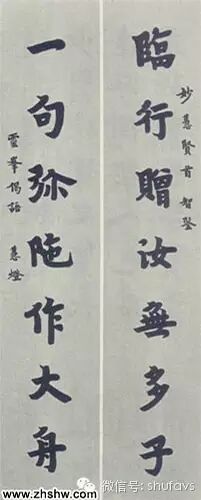 臨行贈汝無多子
妙慧賢首
一句弥陁作大舟
靈峯偈語 慧燈
微信号: shufavs
www.zhshw.com